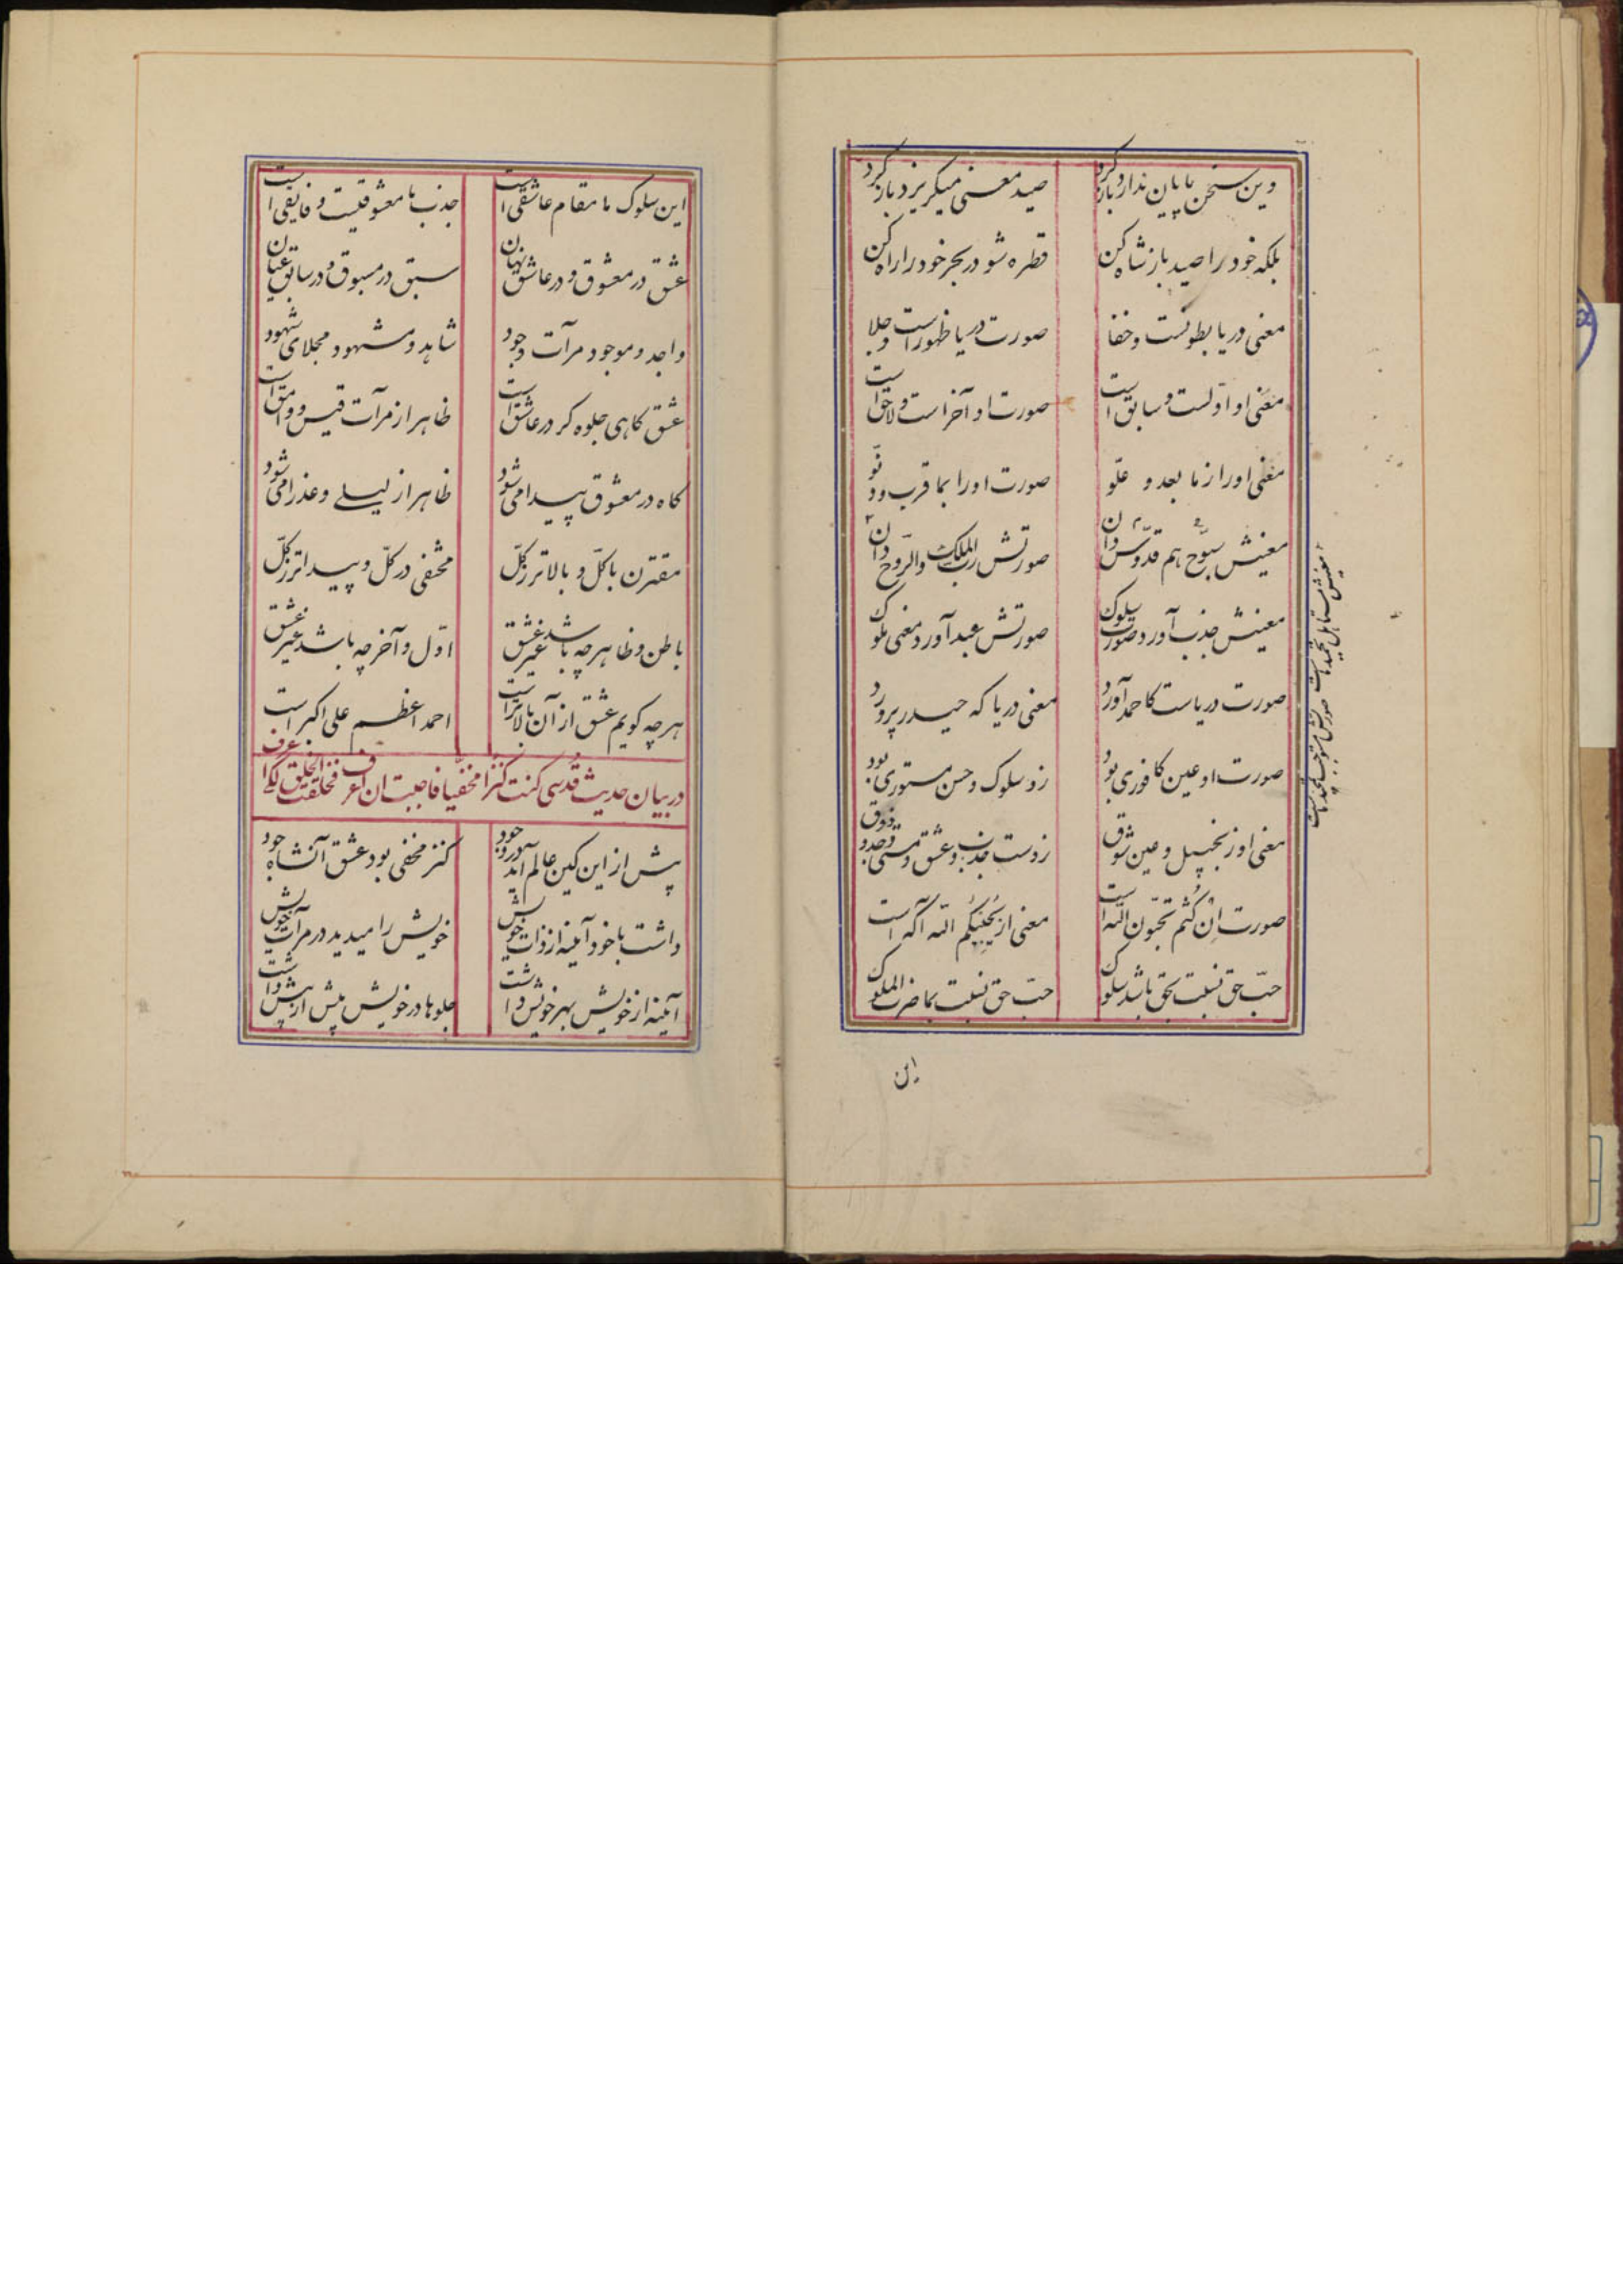 وین سخن پایان ندارد باز کرد
صید معنی میکریزد باز کرد
بلکه خود را صید باز شاه کن
قطره شو در بحر خود را راه کن
معنی دریا بطونست و خفا
صورت دریا ظهور است و جلا
معنی او اولست و سابق است
صورت او آخر است و لاحق است
معنی او را از ما بعد و علوّ
صورت او را بما قرب و دنوّ
معنیش سبّوح هم قدّوس دان
صورتش ربّ الملک والرّوح دان
معنیش جذب آورد صورت سلوک
صورتش عبد آورد معنی ملوک
صورت دریاست کاحمد آورد
معنی دریا که حیدر پرورد
صورت او عین کافوری بود
زو سلوک و حسن مستوری بود
معنی او زنجبیل و عین شوق
زوست جذب و عشق و مستی وجد و ذوق
صورت اِن کُنتُم تحبّون اللّه است
معنی از یُحبِبکُم اللّه آکه است
حبّ حق نسبت بحق باشد سلوک
حبّ حق نسبت بما ضرب الملوک
این
این سلوک ما مقام عاشقی است
جذب ما معشوقیست و فایقی است
عشق در معشوق و در عاشق نهان
سبق در مسبوق و در سابق عیان
واجد و موجود مرآت وجود
شاهد و مشهود و مجلای شهود
عشق کاهی جلوه کر در عاشق است
ظاهر از مرآت قیس و وامق است
کاه در معشوق پیدا می شود
ظاهر از لیلی و عذرا می شود
مقترن با کلّ و بالاتر ز کلّ
مختفی در کلّ و پیداتر ز کلّ
باطن و ظاهر چه باشد غیر عشق
اوّل و آخر چه باشد غیر عشق
هرچه کویم عشق از آن بالاتر است
احمد اعظم علی اکبر است
در بیان حدیث قُدسی کنت کنزا مخفیا فاحببت ان اعرف فخلقت الخلق لکی اعرف
پیش از این کین عالم آید در وجود
کنز مخفی بود عشق آنشاه جود
داشت با خود آینه از ذات خویش
خویش را میدید در مرآت خویش
آینه از خویش بهر خویش داشت
جلوها در خویش بیش از پیش داشت